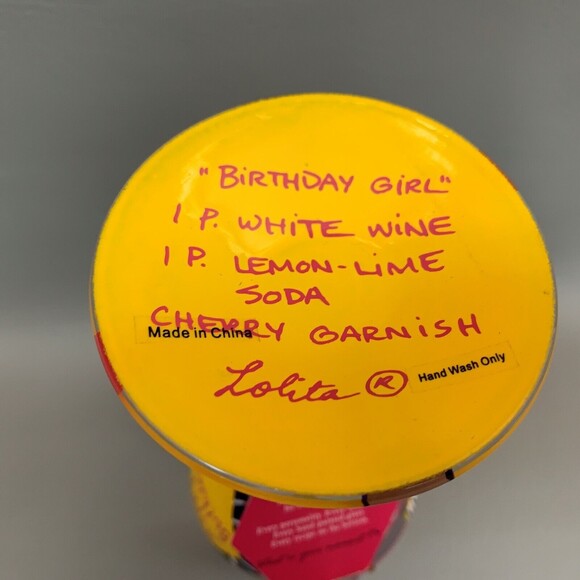 "BiRTHDAY GiRL"
1 P. WHiTE WiNE
1 P. LEMON-LiME
SODA
CHERRY GARNiSH
Made in China
Lolita ®
Hand Wash Only